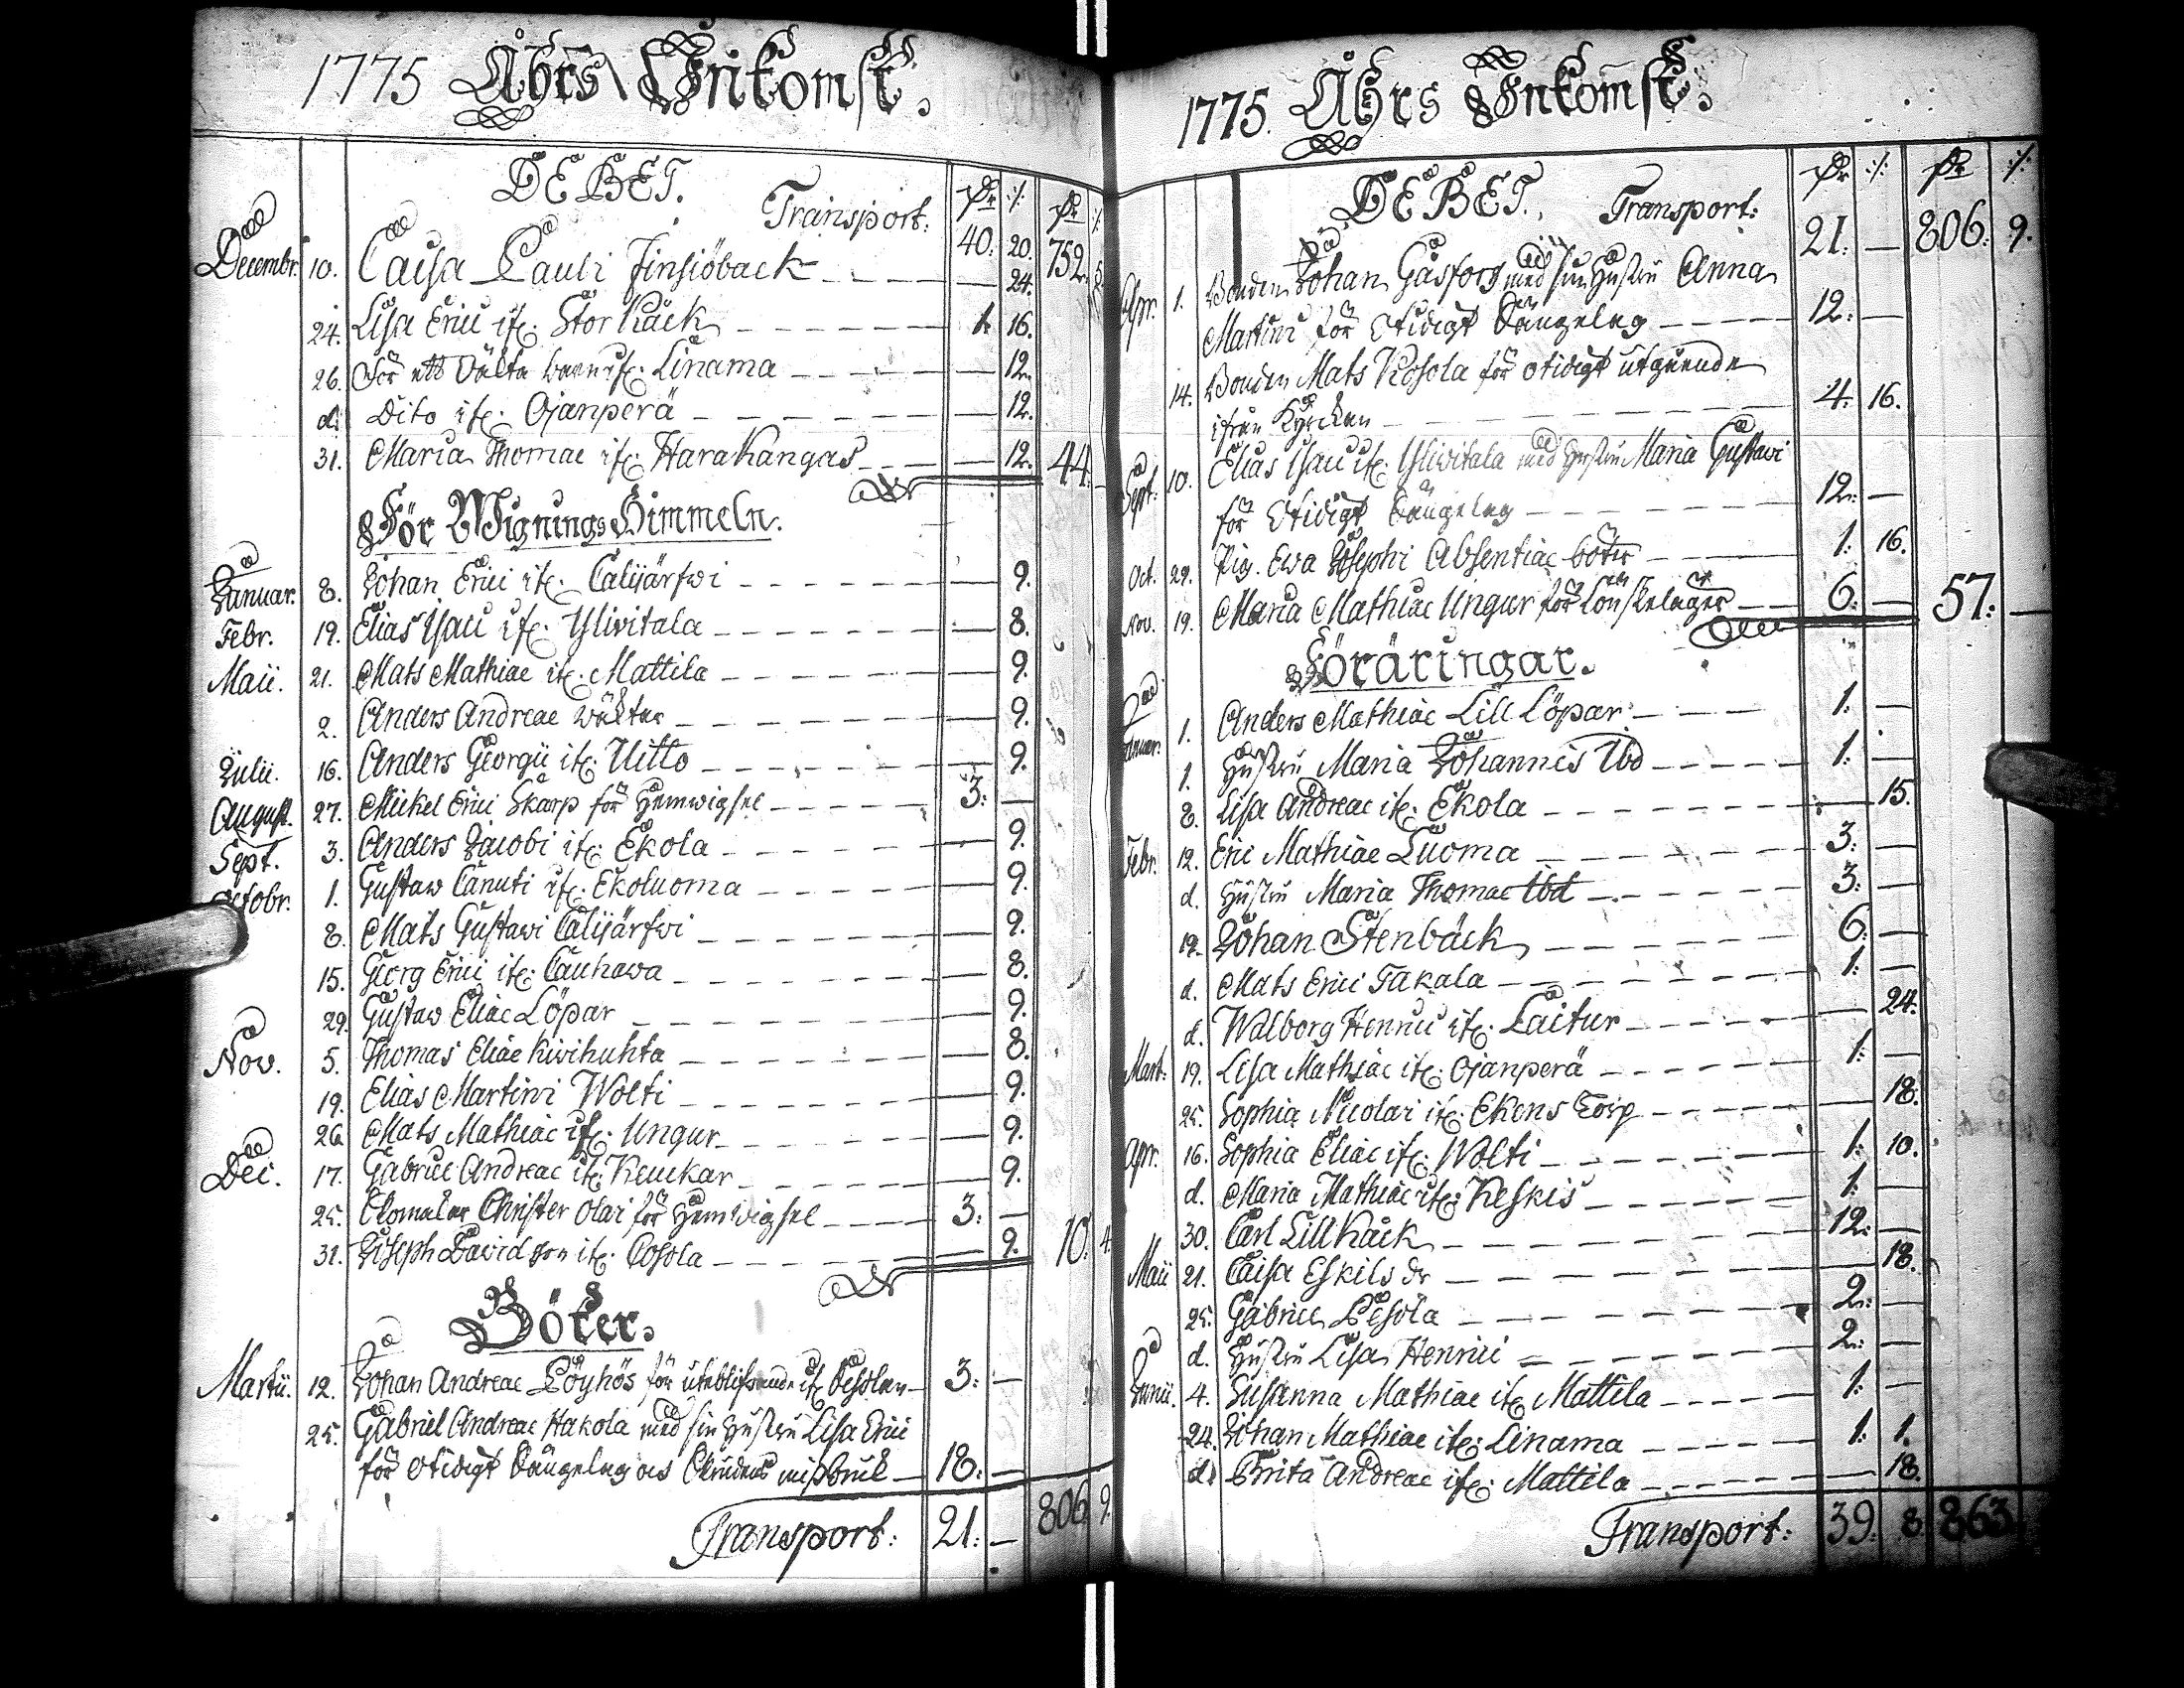 1775 Åhrs Inkomst.
DEBET. Dr ./. Dr ./.
Transport. 40: 20. 752. 5
Decembr. 10. Caisa Pauli Finsiöback 24.
24. Lisa Erici if: Stor Kåck 1. 16.
26. För ett Välta barn if: Linama 12.
d: Dito if: Ojanperä 12.
31. Maria Thomae if: Harakangas 12. 44.
För Wignings Himmeln.
Januar. 8. Johan Erici if: Calijärfwi 9.
Febr. 19. Elias Isaci if: Ylivitala 8.
Maii. 21. Mats Mathiae if: Mattila 9.
2. Anders Andreae Wälter 9.
Julii. 16. Anders Georgii if: Uitto 9.
August. 27. Mickel Erici Skarp för Hemwigsel 3: —
Sept. 3. Anders Jacobi if: Ekola 9.
Octobr. 1. Gustaw Canuti if: Ekoluoma 9.
8. Mats Gustawi Calijärfwi 9.
15. Georg Erici if: Cauhawa 8.
29. Gustaw Eliae Löpar 9.
Nov. 5. Thomas Eliae Kivihuhta 8.
19. Elias Martini Wolti 9.
26. Mats Mathiae if: Ungur 9.
Dec. 17. Gabriel Andreae if: Keuckar 9.
25. Christer Olai för Hemwigsel 3: —
31. Joseph Davidson if: Cosola 9. 10. 4.
Böter.
Martii. 12. Johan Andreae Löyhös för uteblifvande if 3: —
25. Gabriel Andreae Hakola med sin Hustru Lisa Erici
för otidigt Sängelag och missbruk 18: —
Transport: 21: — 806. 9.
1775. Åhrs Inkomst.
DEBET. Dr ./. Dr ./.
Transport: 21: — 806: 9.
Apr. 1. Bonden Johan Gåsfors med sin Hustru Anna
Martini för Otidigt Sängelag 12: —
14. Bonden Mats Kosola för otidigt utgående
ifrån Kyrckan 4: 16.
Sept: 10. Elias Isaci if: Ylivitala med Hustru Maria Gustawi
för Otidigt Sängelag 12: —
Oct. 29. Pig. Ewa Josephi Absentiae böter 1: 16.
Nov. 19. Maria Mathiae Ungur för Lönskeläger 6: — 57: —
Föräringar.
Januar. 1. Anders Mathiae Lill Löpar 1: —
1. Hustru Maria Johannis Ibd 1: —
8. Lisa Andreae if: Ekola 15.
Febr. 12. Eric Mathiae Luoma 3: —
d. Hustru Maria Thomae Ibd 3: —
19. Johan Stenbäck 6: —
d. Mats Erici Takala 1: —
d. Walborg Henrici if: Laitur 24.
Mart: 19. Lisa Mathiae if: Ojanperä 1: —
25. Sophia Nicolai if: Ekens Torp 18.
Apr. 16. Sophia Eliae if: Wolti 1: 10.
d. Maria Mathiae if: Keskis 1: —
30. Carl Lillkåck 12: —
Maii 21. Caisa Eskils dr 18.
25. Gabriel Pesola 2: —
d. Hustru Lisa Henrici 2: —
Junii. 4. Susanna Mathiae if: Mattila 1: —
24. Johan Mathiae if: Linama 1: 1.
d: Brita Andreae if: Mattila 18.
Transport: 39: 8. 863.